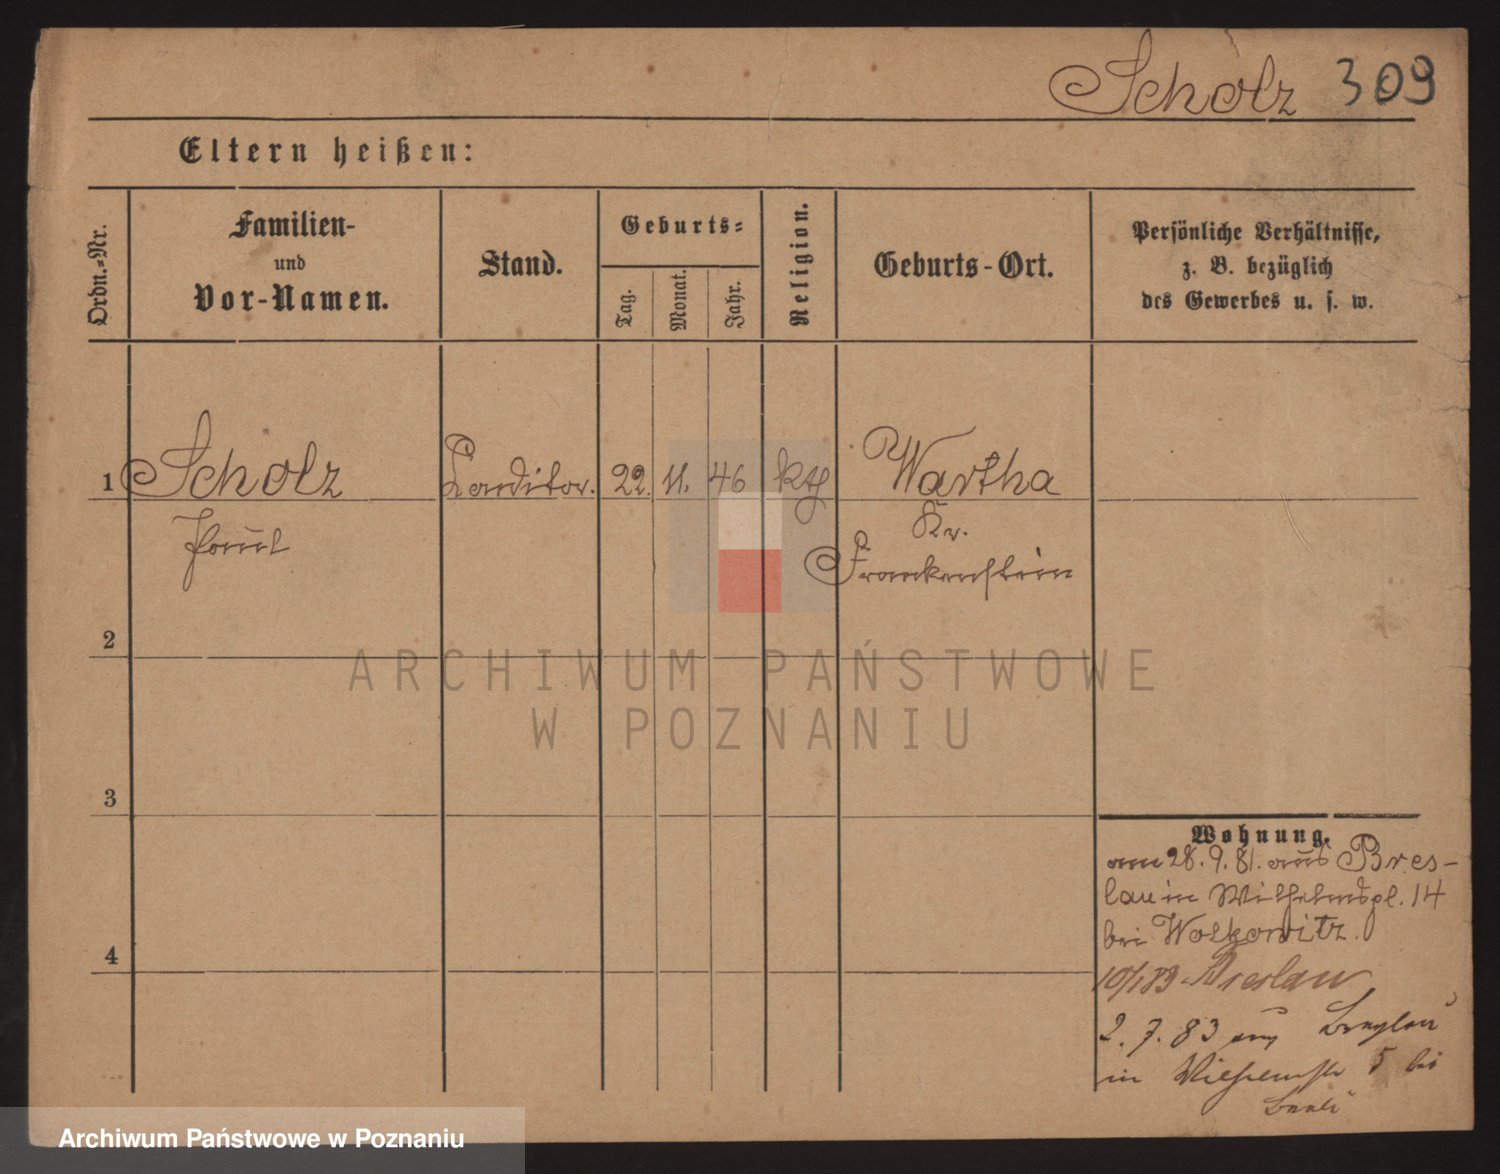 Scholz 309
Eltern heißen:
Ordn.-Nr.
Familien-
und
Vor-Namen.
Stand.
Geburts-
Tag.
Monat.
Jahr.
Religion.
Geburts-Ort.
Persönliche Verhältnisse,
z. B. bezüglich
des Gewerbes u. s. w.
1 Scholz Conditor. 22. 11. 46 kth Wartha
Paul Kr.
Frankenstein
2
ARCHIWUM PAŃSTWOWE
W POZNANIU
3
Wohnung.
am 28. 9. 81. aus Bres-
lau in Wilhelmspl. 14
bei Wolkowitz.
4
10/1 83 Breslau
2. 7. 83 aus Breslau
in Wilhelmstr 5 bei
Archiwum Państwowe w Poznaniu